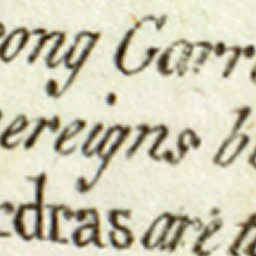 ong Carr
ereigns b
rdras are t